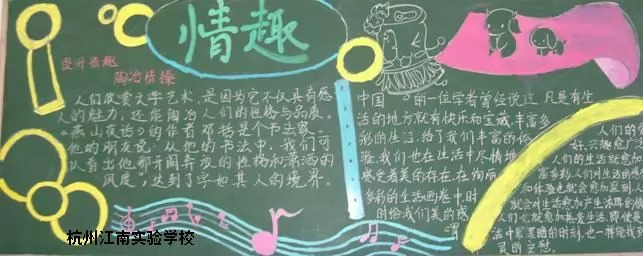 情趣
提升情趣
陶冶情操
人们欣赏文学艺术,是因为它不仅具有感
人的魅力,还能陶冶人们的性格与品质。
《燕山夜话》的作者邓拓是个书法家。
他的朋友说:从他的书法中,我们可
以看出他那开阔奔放的性格和潇洒的
风度,达到了字如其人的境界。
中国的一位学者曾经说过,凡是有生
活的地方就有快乐和宝藏,丰富多
彩的生活,给了我们丰富的体
验,我们也在生活中尽情地
感受着美的存在,在绚丽
多彩的生活画卷中,时
时给我们美的感
人们的
好,兴趣愈广泛
人们的生活就愈加
富多彩,人们对生活的感
和体验也就会愈加深刻,
就会对生活愈加产生浓厚的情
人们也就愈加热爱生活,即使是
活中最黑暗的时刻,也一样能找到
灵的安慰。
杭州江南实验学校